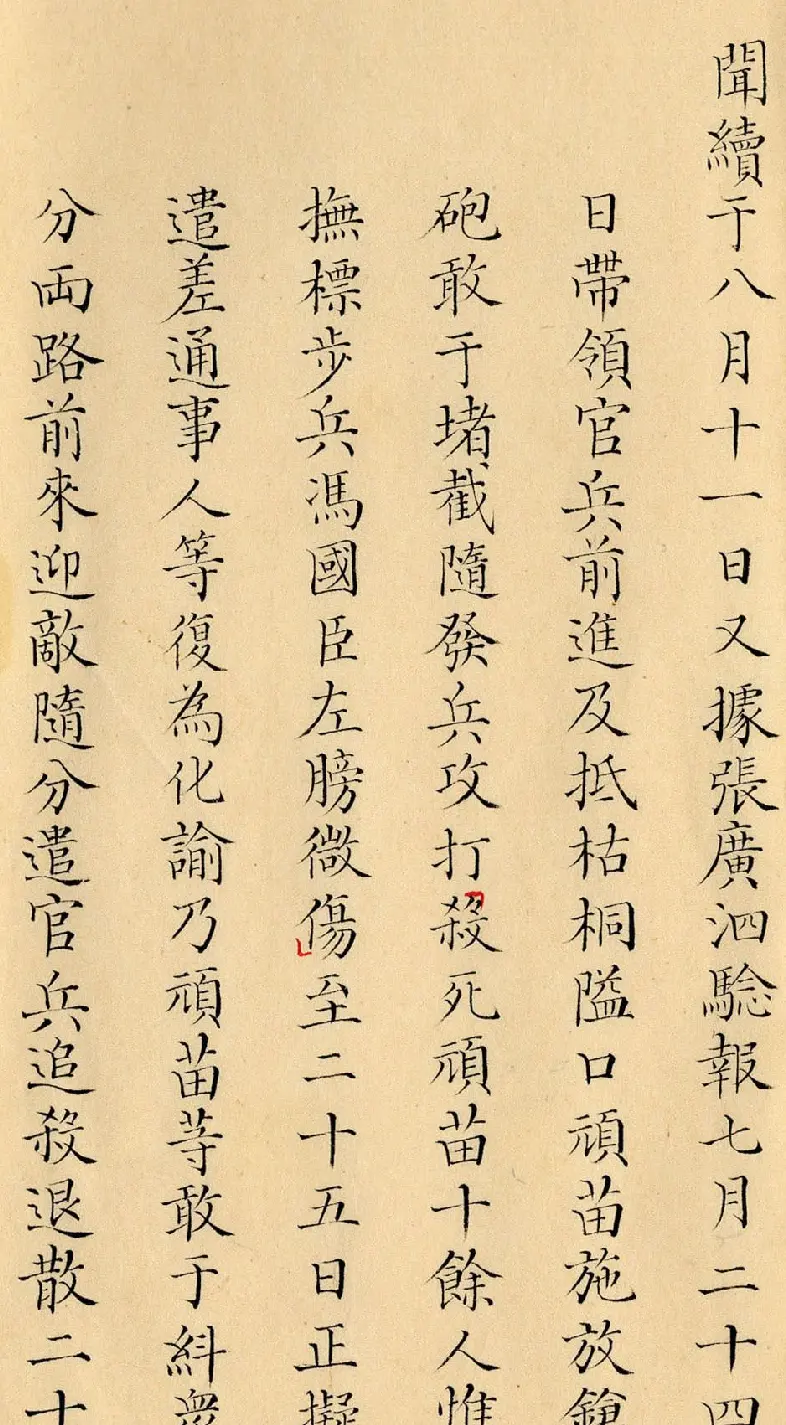 聞續于八月十一日又據張廣泗騐報七月二十四
日帶領官兵前進及抵枯桐隘口頑苗施放鎗
砲敢于堵截隨發兵攻打殺死頑苗十餘人惟
撫標步兵馮國臣左膀微傷至二十五日正擬
遣差通事人等復為化諭乃頑苗等敢于糾衆
分兩路前來迎敵隨分遣官兵追殺退散二十